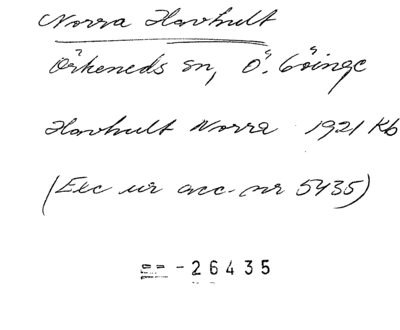 Norra Havhult
Örkeneds sn, Ö. Göinge
Havhult Norra 1921 Kb
(Exc ur acc. nr 5435)
-26435